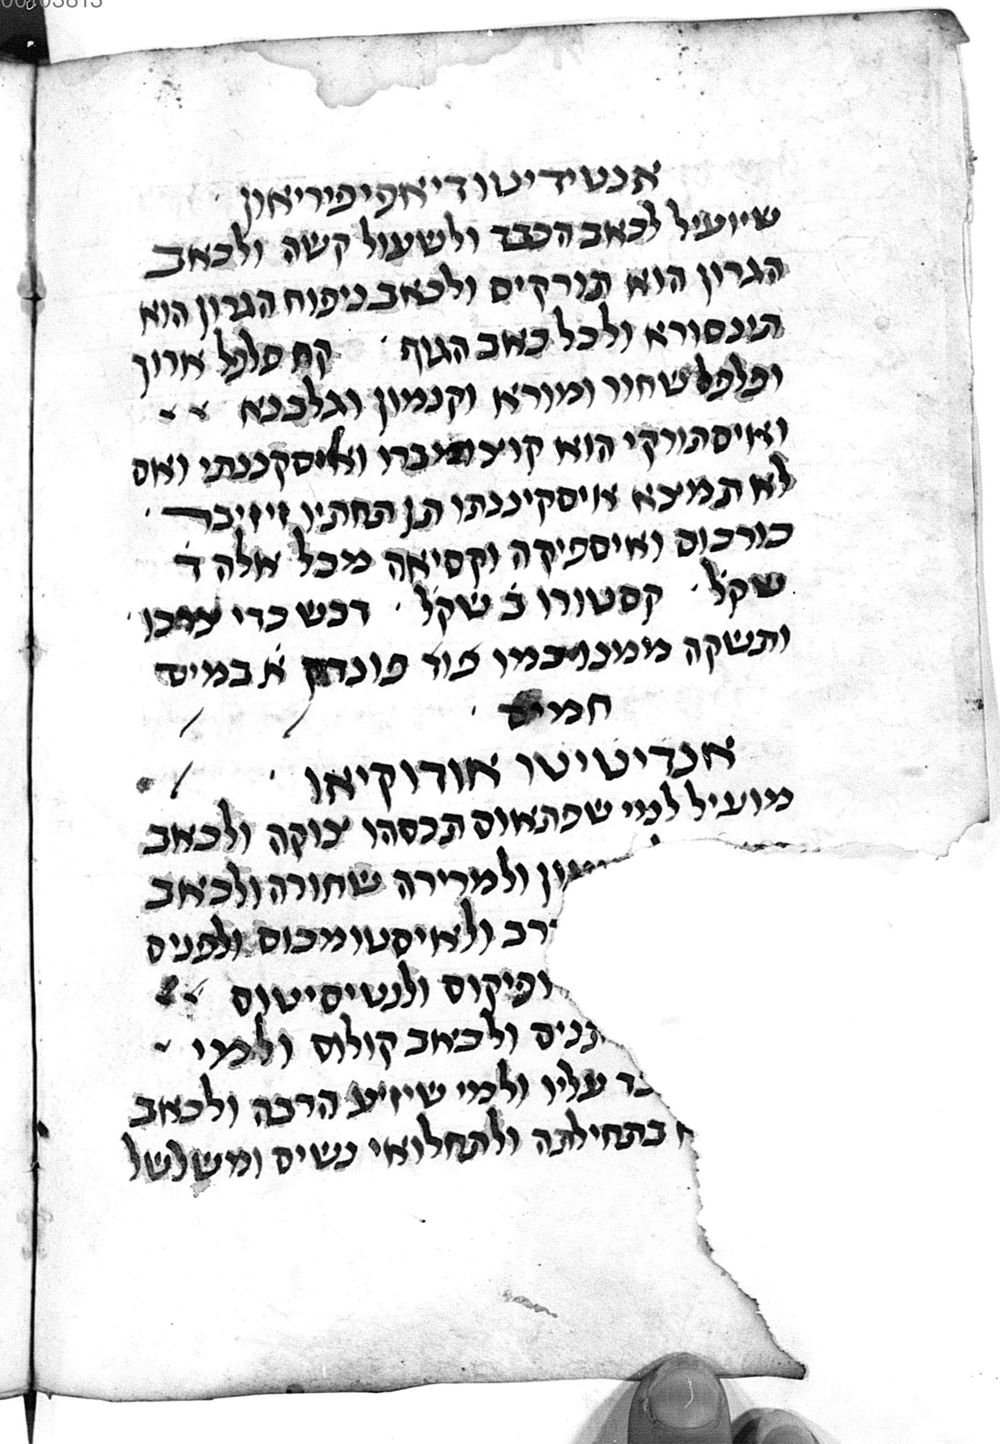 אנטידיטו די אפיפיריאון
שיועיל לכאב הכבד ולשעול קשה ולכאב
הגרון הוא תורקיס ולכאב ניפוח הגרון הוא
תונסורא ולכל כאב הגוף קח פלפל ארוך
ופלפל שחור ומורא וקנמון וגלבנא
ואיסתורקי הוא קוצתמברו ואיסקכנתי ואם
לא תמצא אויסקיננתו תן תחתיו זיזיבר
כורכום ואיספיקה וקסיאה מכל אלה ד
שקל קסטורו ב שקל דבש כדי צרכו
ותשקה ממנו כמו פול פונדק א במים
חמים
אנדיטיטו אודוקיאו
מועיל למי שפתאום תכסהו צוקה ולכאב
ולמרירה שחורה ולכאב
ולאיסטומכוס ולפנים
ופיקוס ולנטיסיטוס
ולכאב קולוס ולמי
עליו ולמי שיזיע הרבה ולכאב
בתחילתה ולתחלואי נשים ומשלשל